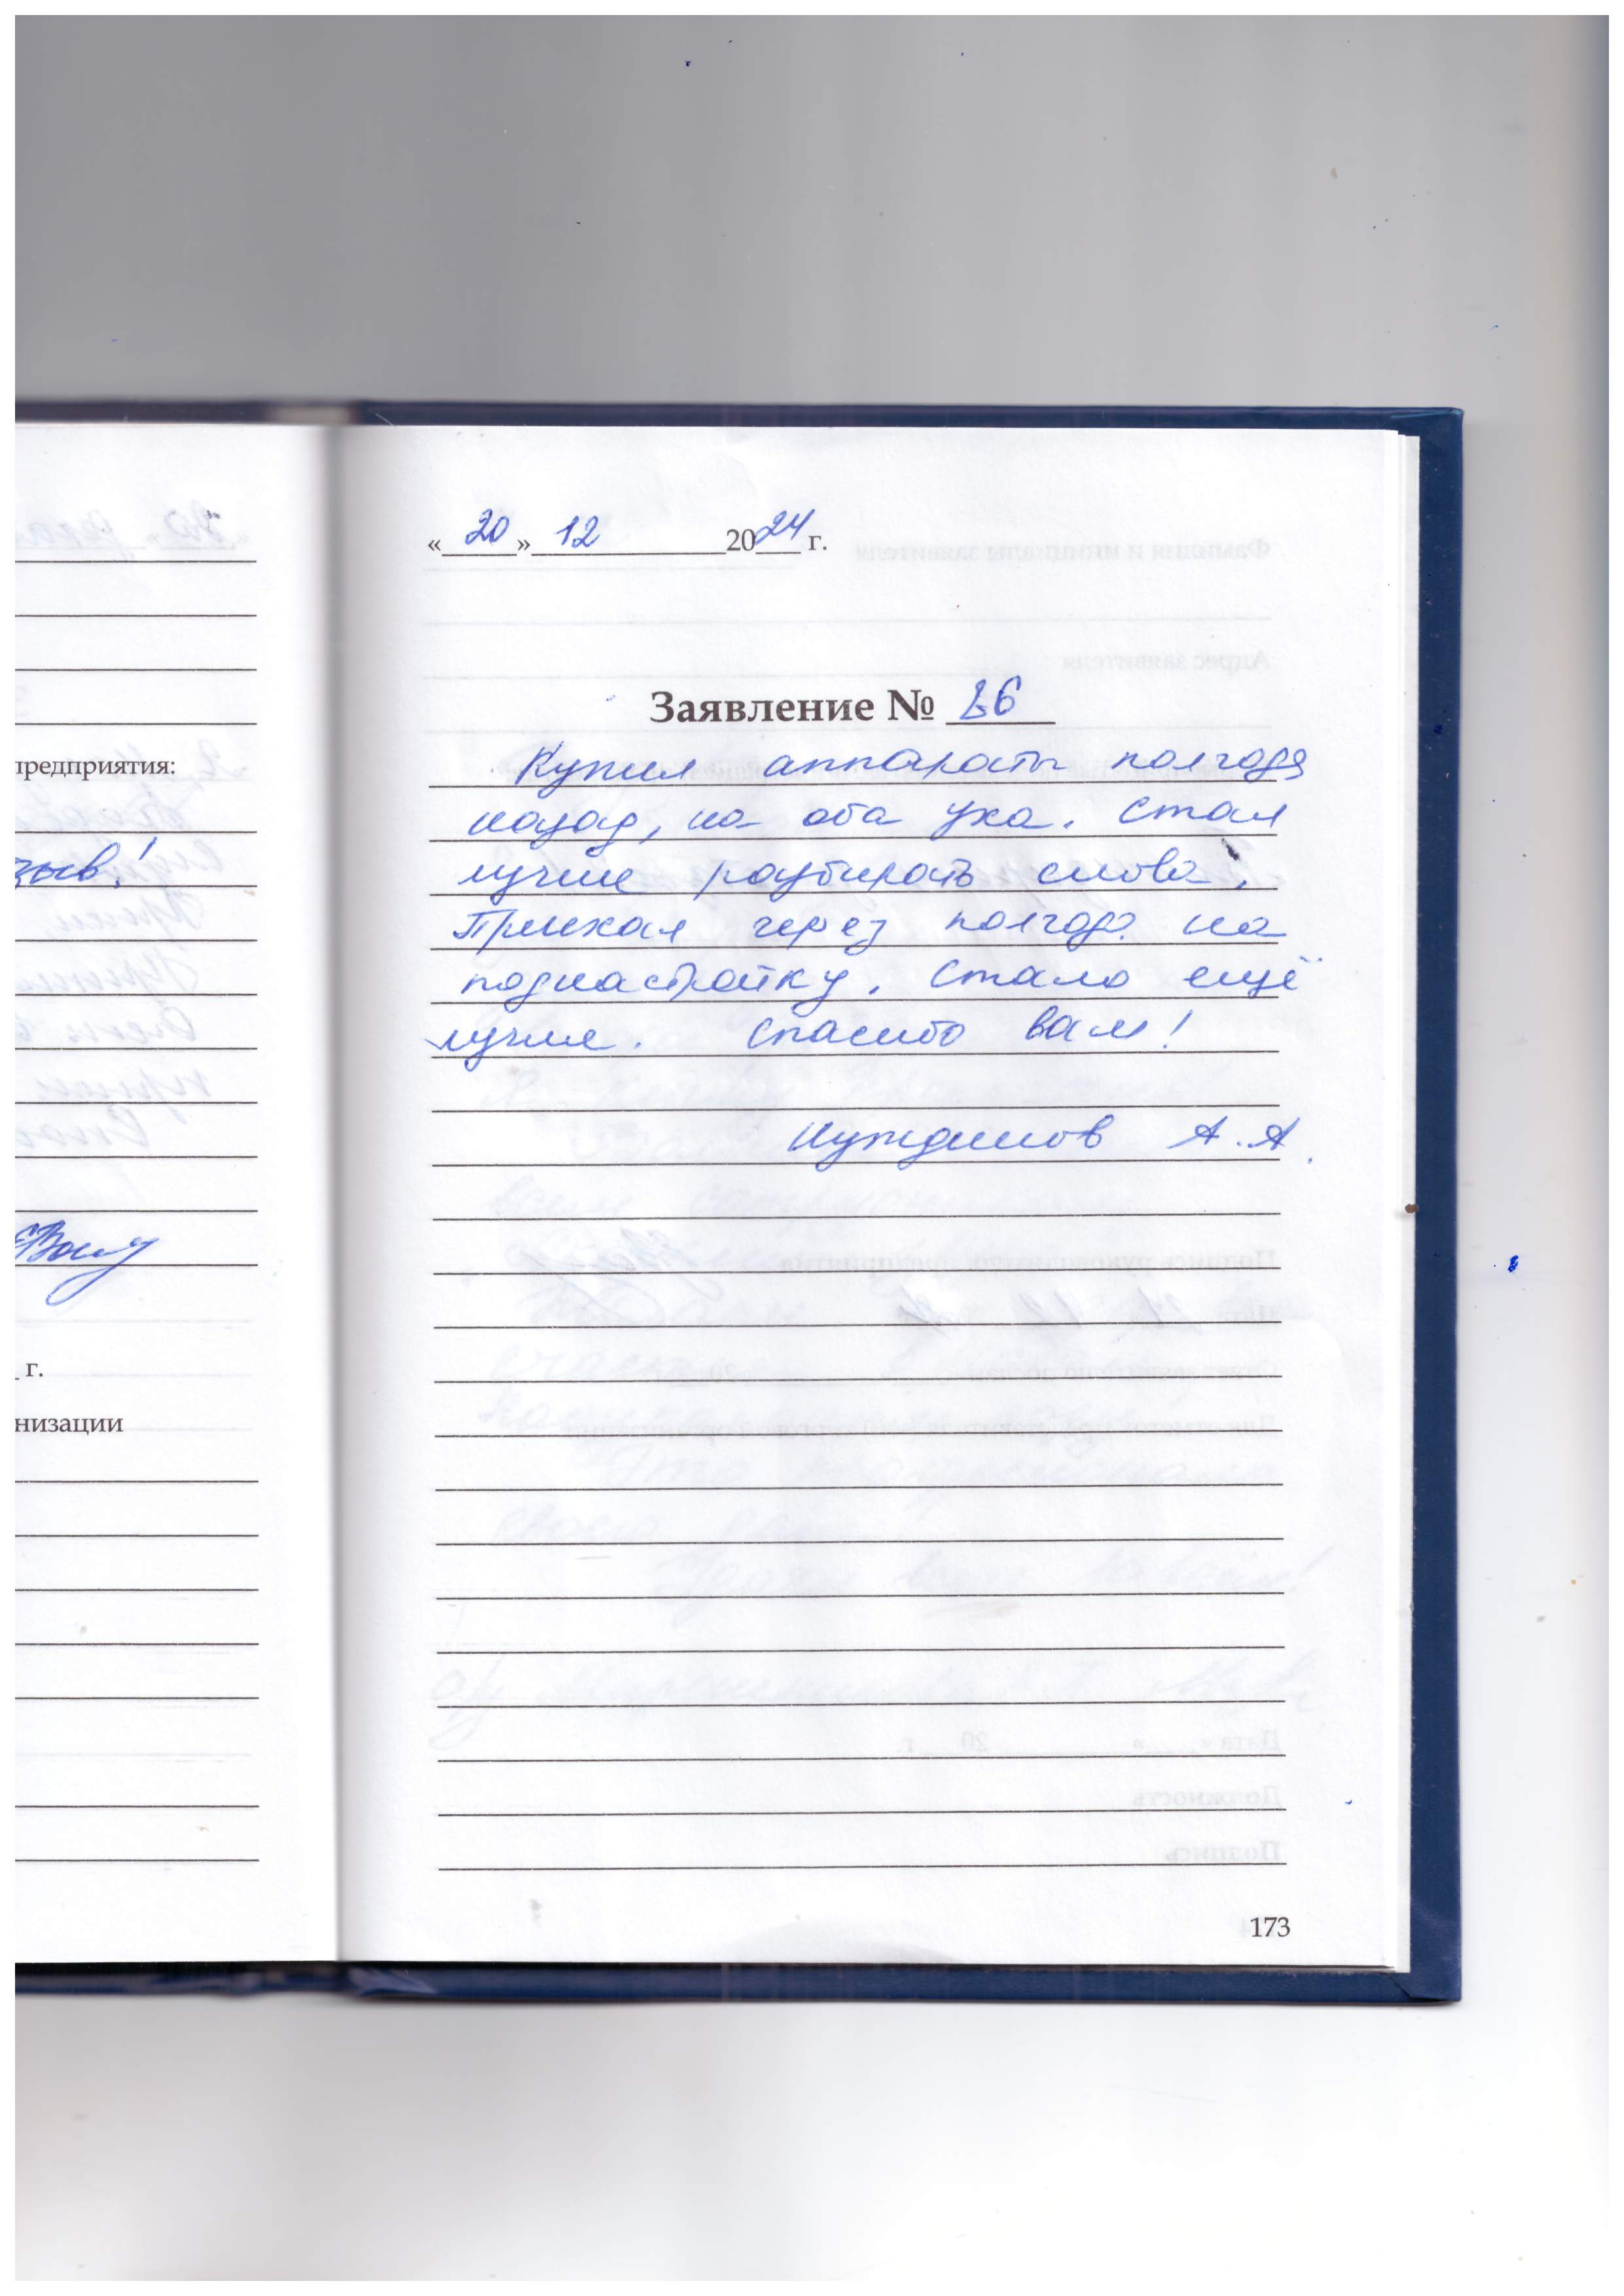 «20» 12 2024 г.
Заявление № 86
Купил аппараты полгода
назад, на оба уха. Стал
лучше разбирать слова.
Приехал через полгода на
поднастройку. Стало ещё
лучше. Спасибо вам!
А.А.
173
предприятия:
г.
низации